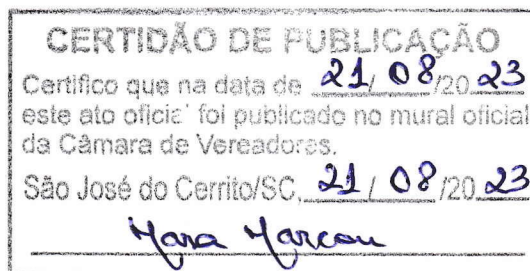 CERTIDÃO DE PUBLICAÇÃO
Certifico que na data de 21/ 08/20 23
este ato oficial foi publicado no mural oficial
da Câmara de Vereadores.
São José do Cerrito/SC, 21 / 08 /20 23
Mara Marcon